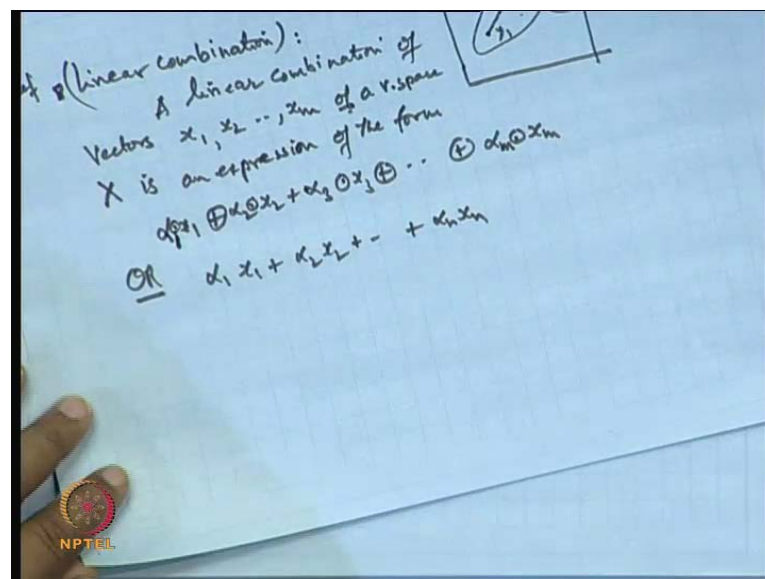 ef (Linear combination):
A linear combination of
Vectors x₁, x₂ .., xₘ of a v.space
X is an expression of the form
α₁⊙x₁ ⊕ α₂⊙x₂ + α₃⊙x₃ ⊕ .. ⊕ αₘ⊙xₘ
OR α₁x₁ + α₂x₂ + - + αₙxₙ
NPTEL